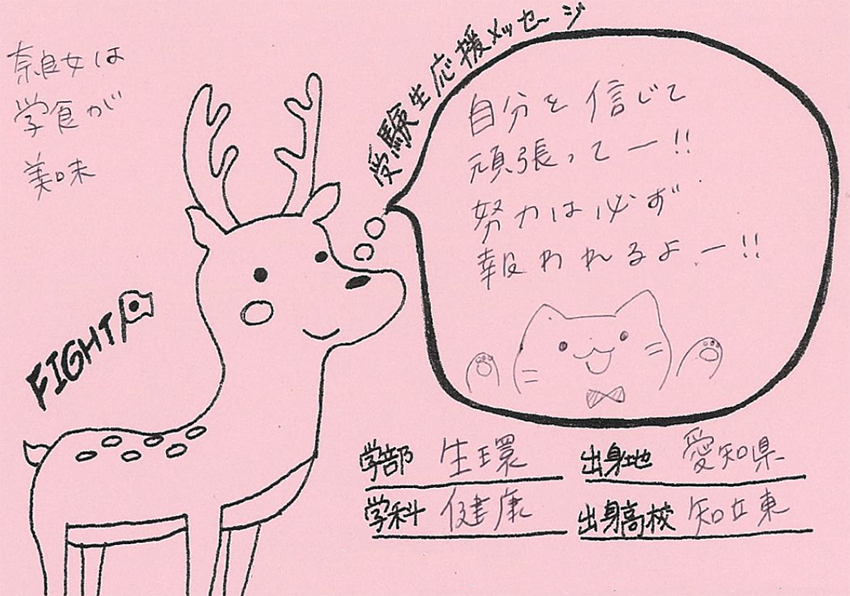 奈良女は
学食が
美味
受験生応援メッセージ
自分を信じて
頑張ってー!!
努力は必ず
報われるよー!!
FIGHT
学部 生環
出身地 愛知県
学科 健康
出身高校 知立東